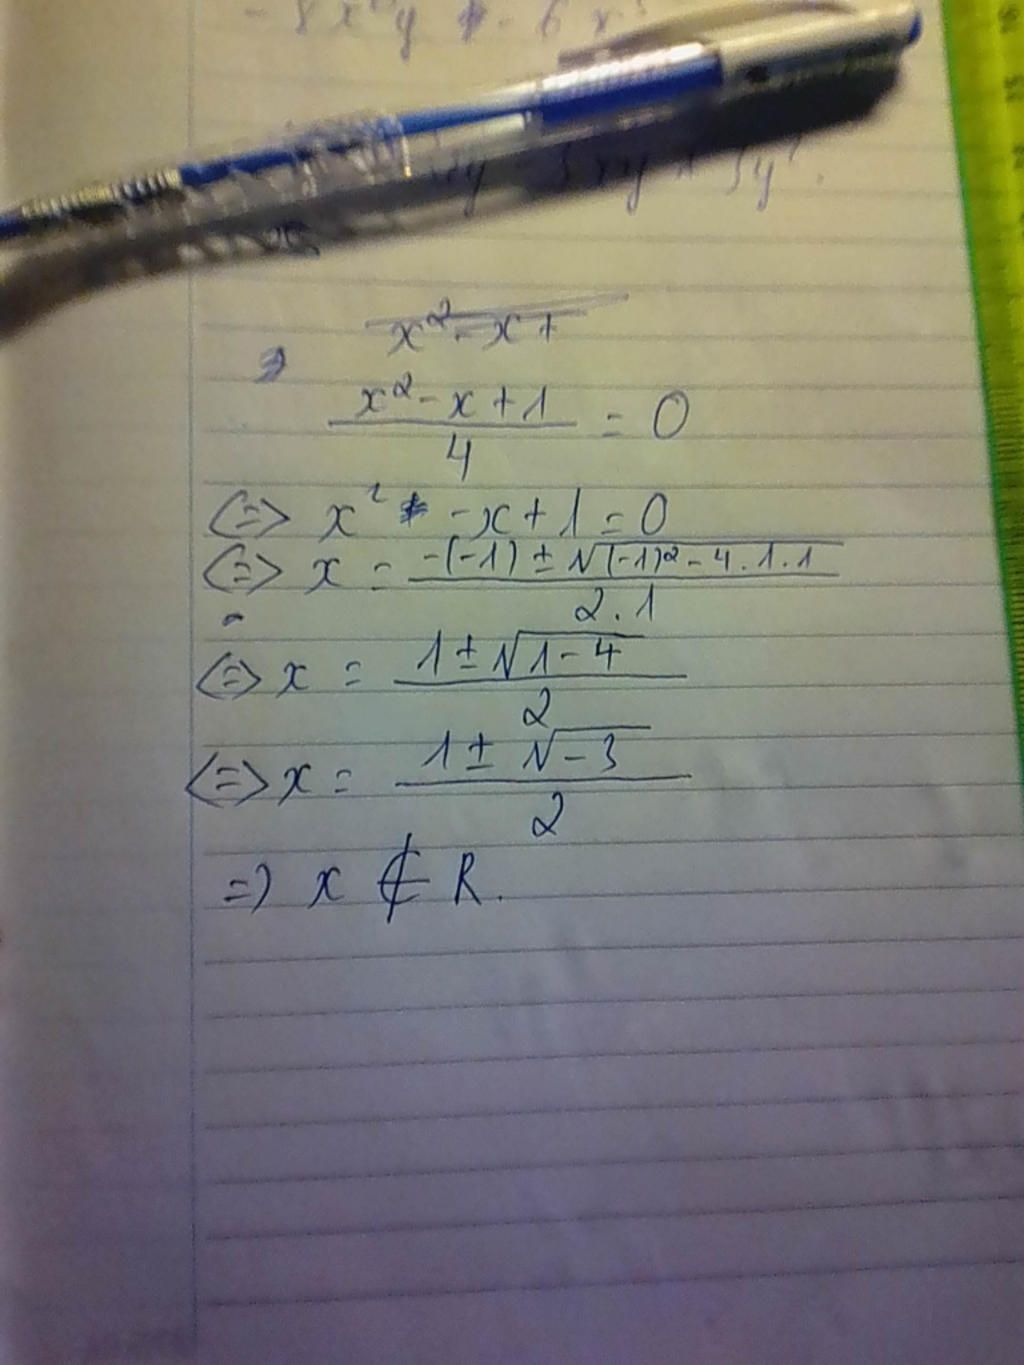 - 8x²y - 6x
xy - 3xy + 3y².
x² - x +
(x² - x + 1)/4 = 0
<=> x² - x + 1 = 0
<=> x = (-(-1) ± √((-1)² - 4.1.1))/(2.1)
<=> x = (1 ± √(1 - 4))/2
<=> x = (1 ± √(-3))/2
=> x ∉ R.